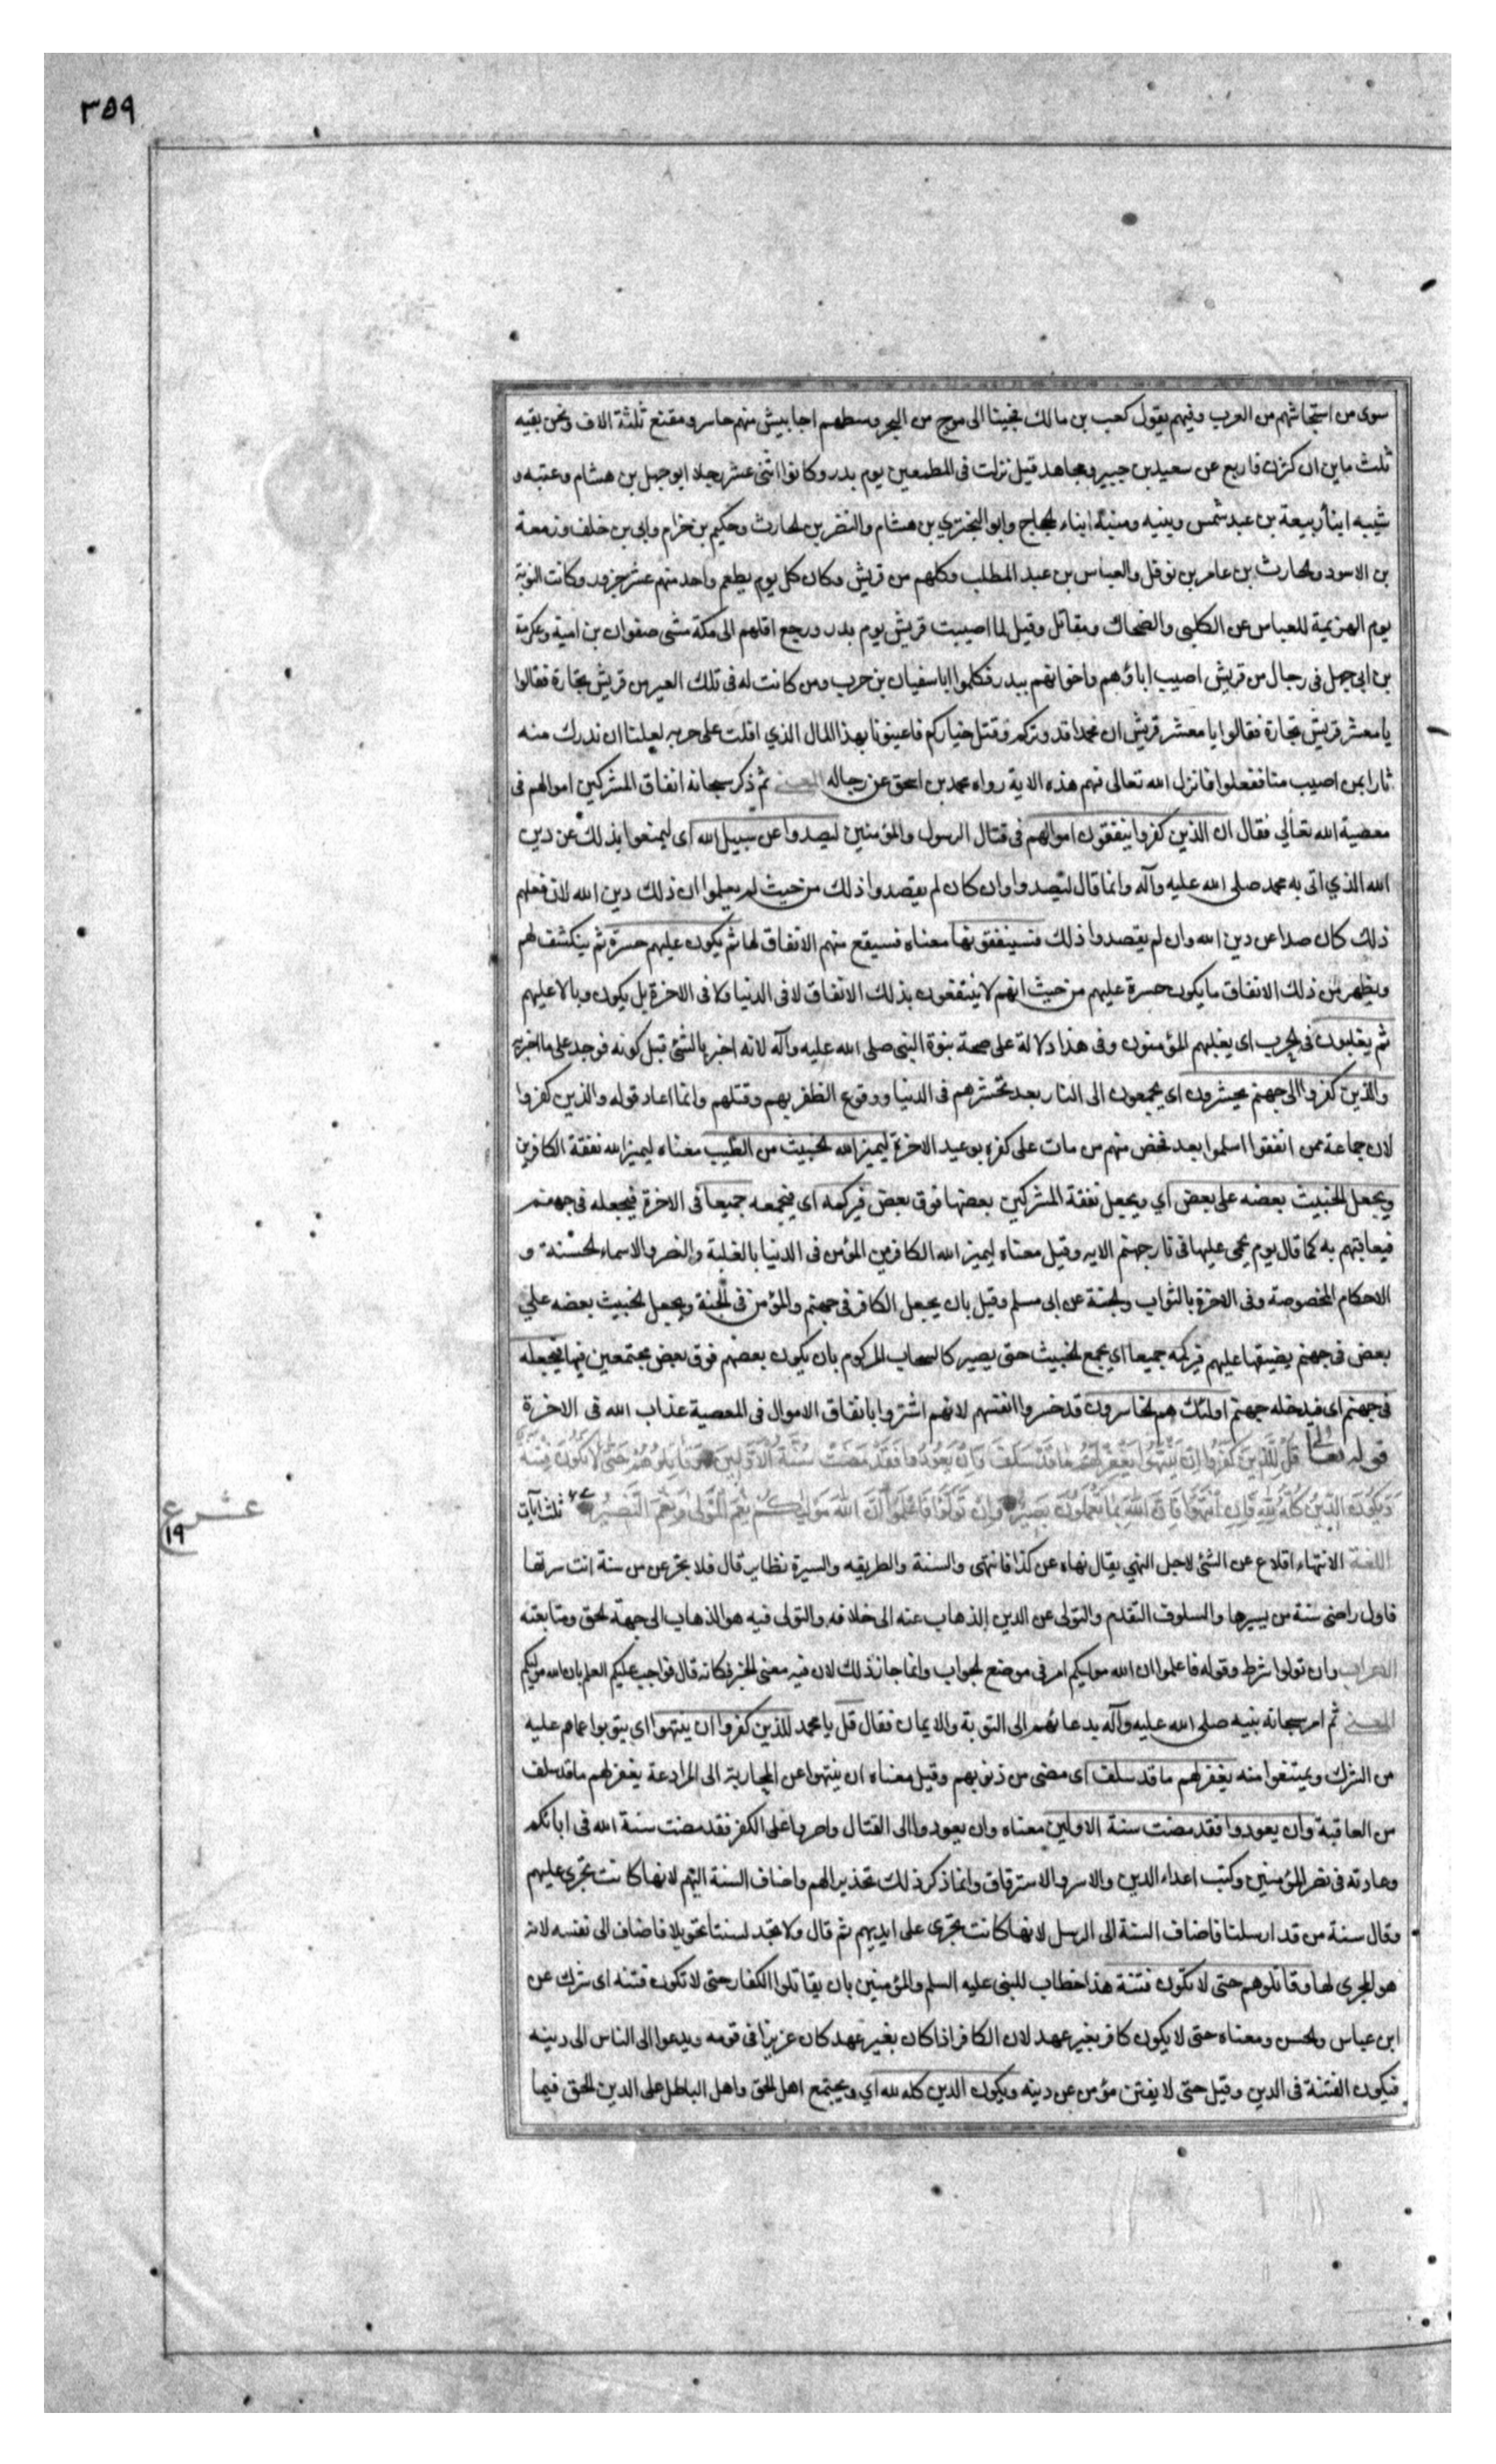 ٣٥٩
سوى من استجاشهم من العرب وفيهم يقول كعب بن مالك فجينا الى موج من البحر وسطهم احابيش منهم حاسر ومقنع ثلثة الاف ونحن بقيه
ثلث ماين ان كثرن فاربع عن سعيد بن جبير ومجاهد قيل نزلت فى المطمعين يوم بدر وكانوا اثنى عشر رجلا ابوجهل بن هشام وعتبه و
شيبه ابنا ربيعة بن عبد شمس ونبيه ومنبه ابناء الحجاج وابو البختري بن هشام والنضر بن الحارث وحكيم بن خزام وابى بن خلف وزمعة
بن الاسود والحارث بن عامر بن نوفل والعباس بن عبد المطلب وكلهم من قريش وكان كل يوم يطعم واحد منهم عشر جزور وكانت النوبة
يوم الهزيمة للعباس عن الكلبى والضحاك ومقاتل وقيل لما اصيبت قريش يوم بدر ورجع اقلهم الى مكة مشى صفوان بن امية وعكرمة
بن ابى جهل فى رجال من قريش اصيب اباؤهم واخوانهم ببدر فكلموا ابا سفيان بن حرب ومن كانت له فى تلك العير من قريش تجارة فقالوا
يا معشر قريش تجارة فقالوا يا معشر قريش ان محمدا قد وتركم وقتل خياركم فاعينونا بهذا المال الذي افلت على حربه لعلنا ان ندرك منه
ثارا بمن اصيب منا ففعلوا فانزل الله تعالى فهم هذه الاية رواه محمد بن اسحق عن رجاله المعنى ثم ذكر سبحانه انفاق المشركين اموالهم فى
معصية الله تعالي فقال ان الذين كفروا ينفقون اموالهم فى قتال الرسول والمؤمنين ليصدوا عن سبيل الله اى ليمنعوا بذلك عن دين
الله الذي اتى به محمد صلى الله عليه وآله وانما قال ليصدوا وان كان لم يقصدوا ذلك من حيث لم يعلموا ان ذلك دين الله لان فعلهم
ذلك كان صدا عن دين الله وان لم يقصدوا ذلك فسينفقونها معناه فسيقع منهم الانفاق لها ثم يكون عليهم حسرة ثم ينكشف لهم
ويظهر من ذلك الانفاق ما يكون حسرة عليهم من حيث انهم لا ينتفعون بذلك الانفاق لا فى الدنيا ولا فى الاخرة بل يكون وبالا عليهم
ثم يغلبون فى الحرب اى يغلبهم المؤمنون وفى هذا دلالة على صحة نبوة النبى صلى الله عليه وآله لانه اخبر بالشئ قبل كونه فوجد على ما اخبر به
والذين كفروا الى جهنم يحشرون اى يجمعون الى النار بعد تحسرهم فى الدنيا ووقوع الظفر بهم وقتلهم وانما اعاد قوله والذين كفروا
لان جماعة ممن انفقوا اسلموا بعد فخص منهم من مات على كفره بوعيد الاخرة ليميز الله الخبيث من الطيب معناه ليميز الله نفقة الكافرين
ويجعل الخبيث بعضه على بعض اي ويجعل نفقة المشركين بعضها فوق بعض فيركمه اى فيجمعه جميعا فى الاخرة فيجعله فى جهنم
فيعاقبهم به كما قال يوم يحمى عليها فى نار جهنم الايه وقيل معناه ليميز الله الكافر من المؤمن فى الدنيا بالغلبة والنصر والاسماء الحسنة و
الاحكام المخصوصة وفى الاخرة بالثواب والجنة عن ابى مسلم وقيل بان يجعل الكافر فى جهنم والمؤمن فى الجنة ويجعل الخبيث بعضه علي
بعض فى جهنم يضيقها عليهم فيركمه جميعا اي يجمع الخبيث حتى يصير كالسحاب المركوم بان يكون بعضهم فوق بعض مجتمعين فيها فيجعله
فى جهنم اى فيدخله جهنم اولئك هم الخاسرون قد خسروا انفسهم لانهم اشتروا بانفاق الاموال فى المعصية عذاب الله فى الاخرة
قوله تعالى قُل لِلَّذِينَ كَفَرُوا إِنْ يَنْتَهُوا يُغْفَرْ لَهُمْ مَا قَدْ سَلَفَ وَإِنْ يَعُودُوا فَقَدْ مَضَتْ سُنَّةُ الْأَوَّلِينَ وَقَاتِلُوهُمْ حَتَّى لَا تَكُونَ فِتْنَةٌ
وَيَكُونَ الدِّينُ كُلُّهُ لِلَّهِ فَإِنِ انْتَهَوْا فَإِنَّ اللَّهَ بِمَا يَعْمَلُونَ بَصِيرٌ وَإِنْ تَوَلَّوْا فَاعْلَمُوا أَنَّ اللَّهَ مَوْلَاكُمْ نِعْمَ الْمَوْلَى وَنِعْمَ النَّصِيرُ ثلث آيات
عشر ع
١٩
اللغة الانتهاء اقلاع عن الشئ لاجل النهي يقال نهاه عن كذا فانتهى والسنة والطريقه والسيرة نظاير قال فلا تجزعن من سنة انت سرتها
فاول راضى سنة من يسيرها والسلوف التقدم والتولى عن الدين الذهاب عنه الى خلافه والتولى فيه هو الذهاب الى جهة الحق ومتابعته
الاعراب وان تولوا شرط وقوله فاعلموا ان الله موليكم امر فى موضع الجواب وانما جاز ذلك لان فيه معنى الخبر فكانه قال فواجب عليكم العلم بان الله موليكم
المعنى ثم امر سبحانه نبيه صلى الله عليه وآله بدعائهم الى التوبة والايمان فقال قل يا محمد للذين كفروا ان ينتهوا اى يتوبوا عما هم عليه
من الشرك ويمتنعوا منه يغفر لهم ما قد سلف اى مضى من ذنوبهم وقيل معناه ان ينتهوا عن المحاربة الى الموادعة يغفر لهم ما قد سلف
من العاقبة وان يعودوا فقد مضت سنة الاولين معناه وان يعودوا الى القتال واصروا على الكفر فقد مضت سنة الله فى ابائكم
وعادته فى نصر المؤمنين وكبت اعداء الدين والاسر والاسترقاق وانما ذكر ذلك تحذيرا لهم واضاف السنة اليهم لانها كانت تجرى عليهم
وقال سنة من قد ارسلنا فاضاف السنة الى الرسل لانها كانت تجرى على ايديهم ثم قال ولا تجد لسنتنا تحويلا فاضاف الى نفسه لانه
هو المجرى لها وقاتلوهم حتى لا تكون فتنة هذا خطاب للنبى عليه السلم والمؤمنين بان يقاتلوا الكفار حتى لا تكون فتنه اى شرك عن
ابن عباس والحسن ومعناه حتى لا يكون كافر بغير عهد لان الكافر اذا كان بغير عهد كان عزيزا فى قومه ويدعوا الى الناس الى دينه
فيكون الفتنة فى الدين وقيل حتى لا يفتن مؤمن عن دينه ويكون الدين كله لله اي ويجتمع اهل الحق واهل الباطل على الدين الحق فيما